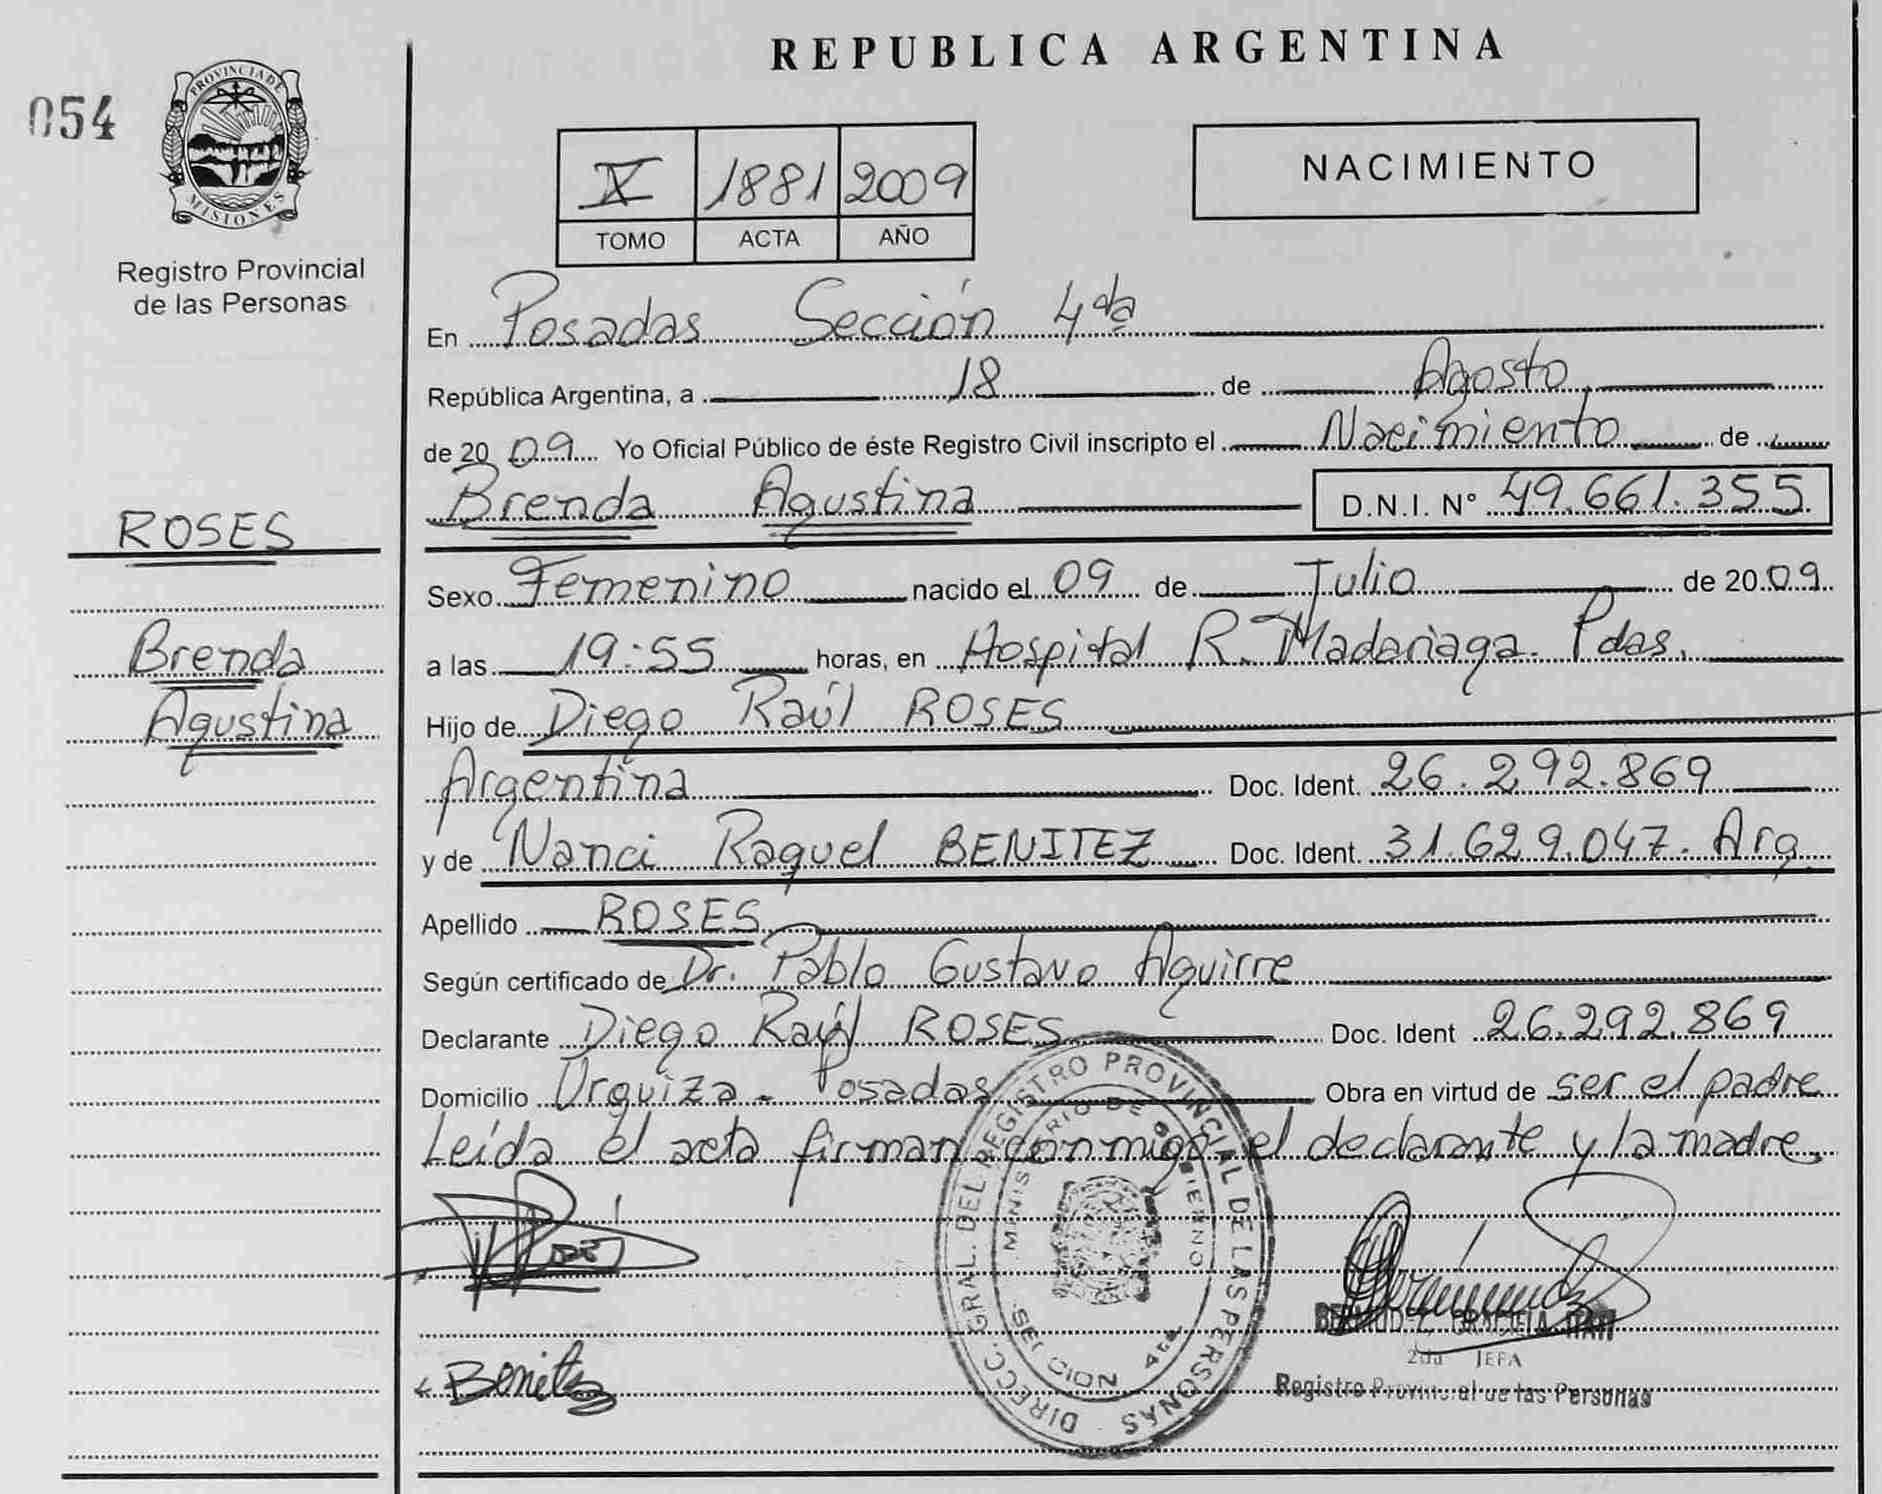 REPUBLICA ARGENTINA
054
PROVINCIA DE
MISIONES
Registro Provincial
de las Personas
X 1881 2009
TOMO ACTA AÑO
NACIMIENTO
En Posadas Sección 4da
República Argentina, a 18 de Agosto
de 2009 Yo Oficial Público de éste Registro Civil inscripto el Nacimiento de
Brenda Agustina D.N.I. Nº 49.661.355
ROSES
Brenda
Agustina
Sexo Femenino nacido el 09 de Julio de 2009
a las 19:55 horas, en Hospital R. Madariaga. Pdas.
Hijo de Diego Raúl ROSES
Argentina Doc. Ident. 26.292.869
y de Nanci Raquel BENITEZ Doc. Ident. 31.629.047. Arg.
Apellido ROSES
Según certificado de Dr. Pablo Gustavo Aguirre
Declarante Diego Raúl ROSES Doc. Ident 26.292.869
Domicilio Urquiza - Posadas Obra en virtud de ser el padre
Leída el acta firman conmigo el declarante y la madre.
DIRECC. GRAL. DEL REGISTRO PROVINCIAL DE LAS PERSONAS
MINISTERIO DE GOBIERNO
SECCION 4ta.
GRACIELA ITATI
2da JEFA
Registro Provincial de las Personas
Benitez